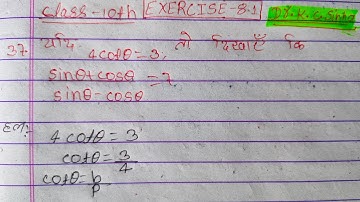 class-10th EXERCISE-8.1 Dr. K. C. Sinha
37. यदि 4cotθ = 3, तो दिखाएँ कि
sinθ+cosθ = 7
sinθ-cosθ
हल:
4cotθ = 3
cotθ = 3/4
cotθ = b/p